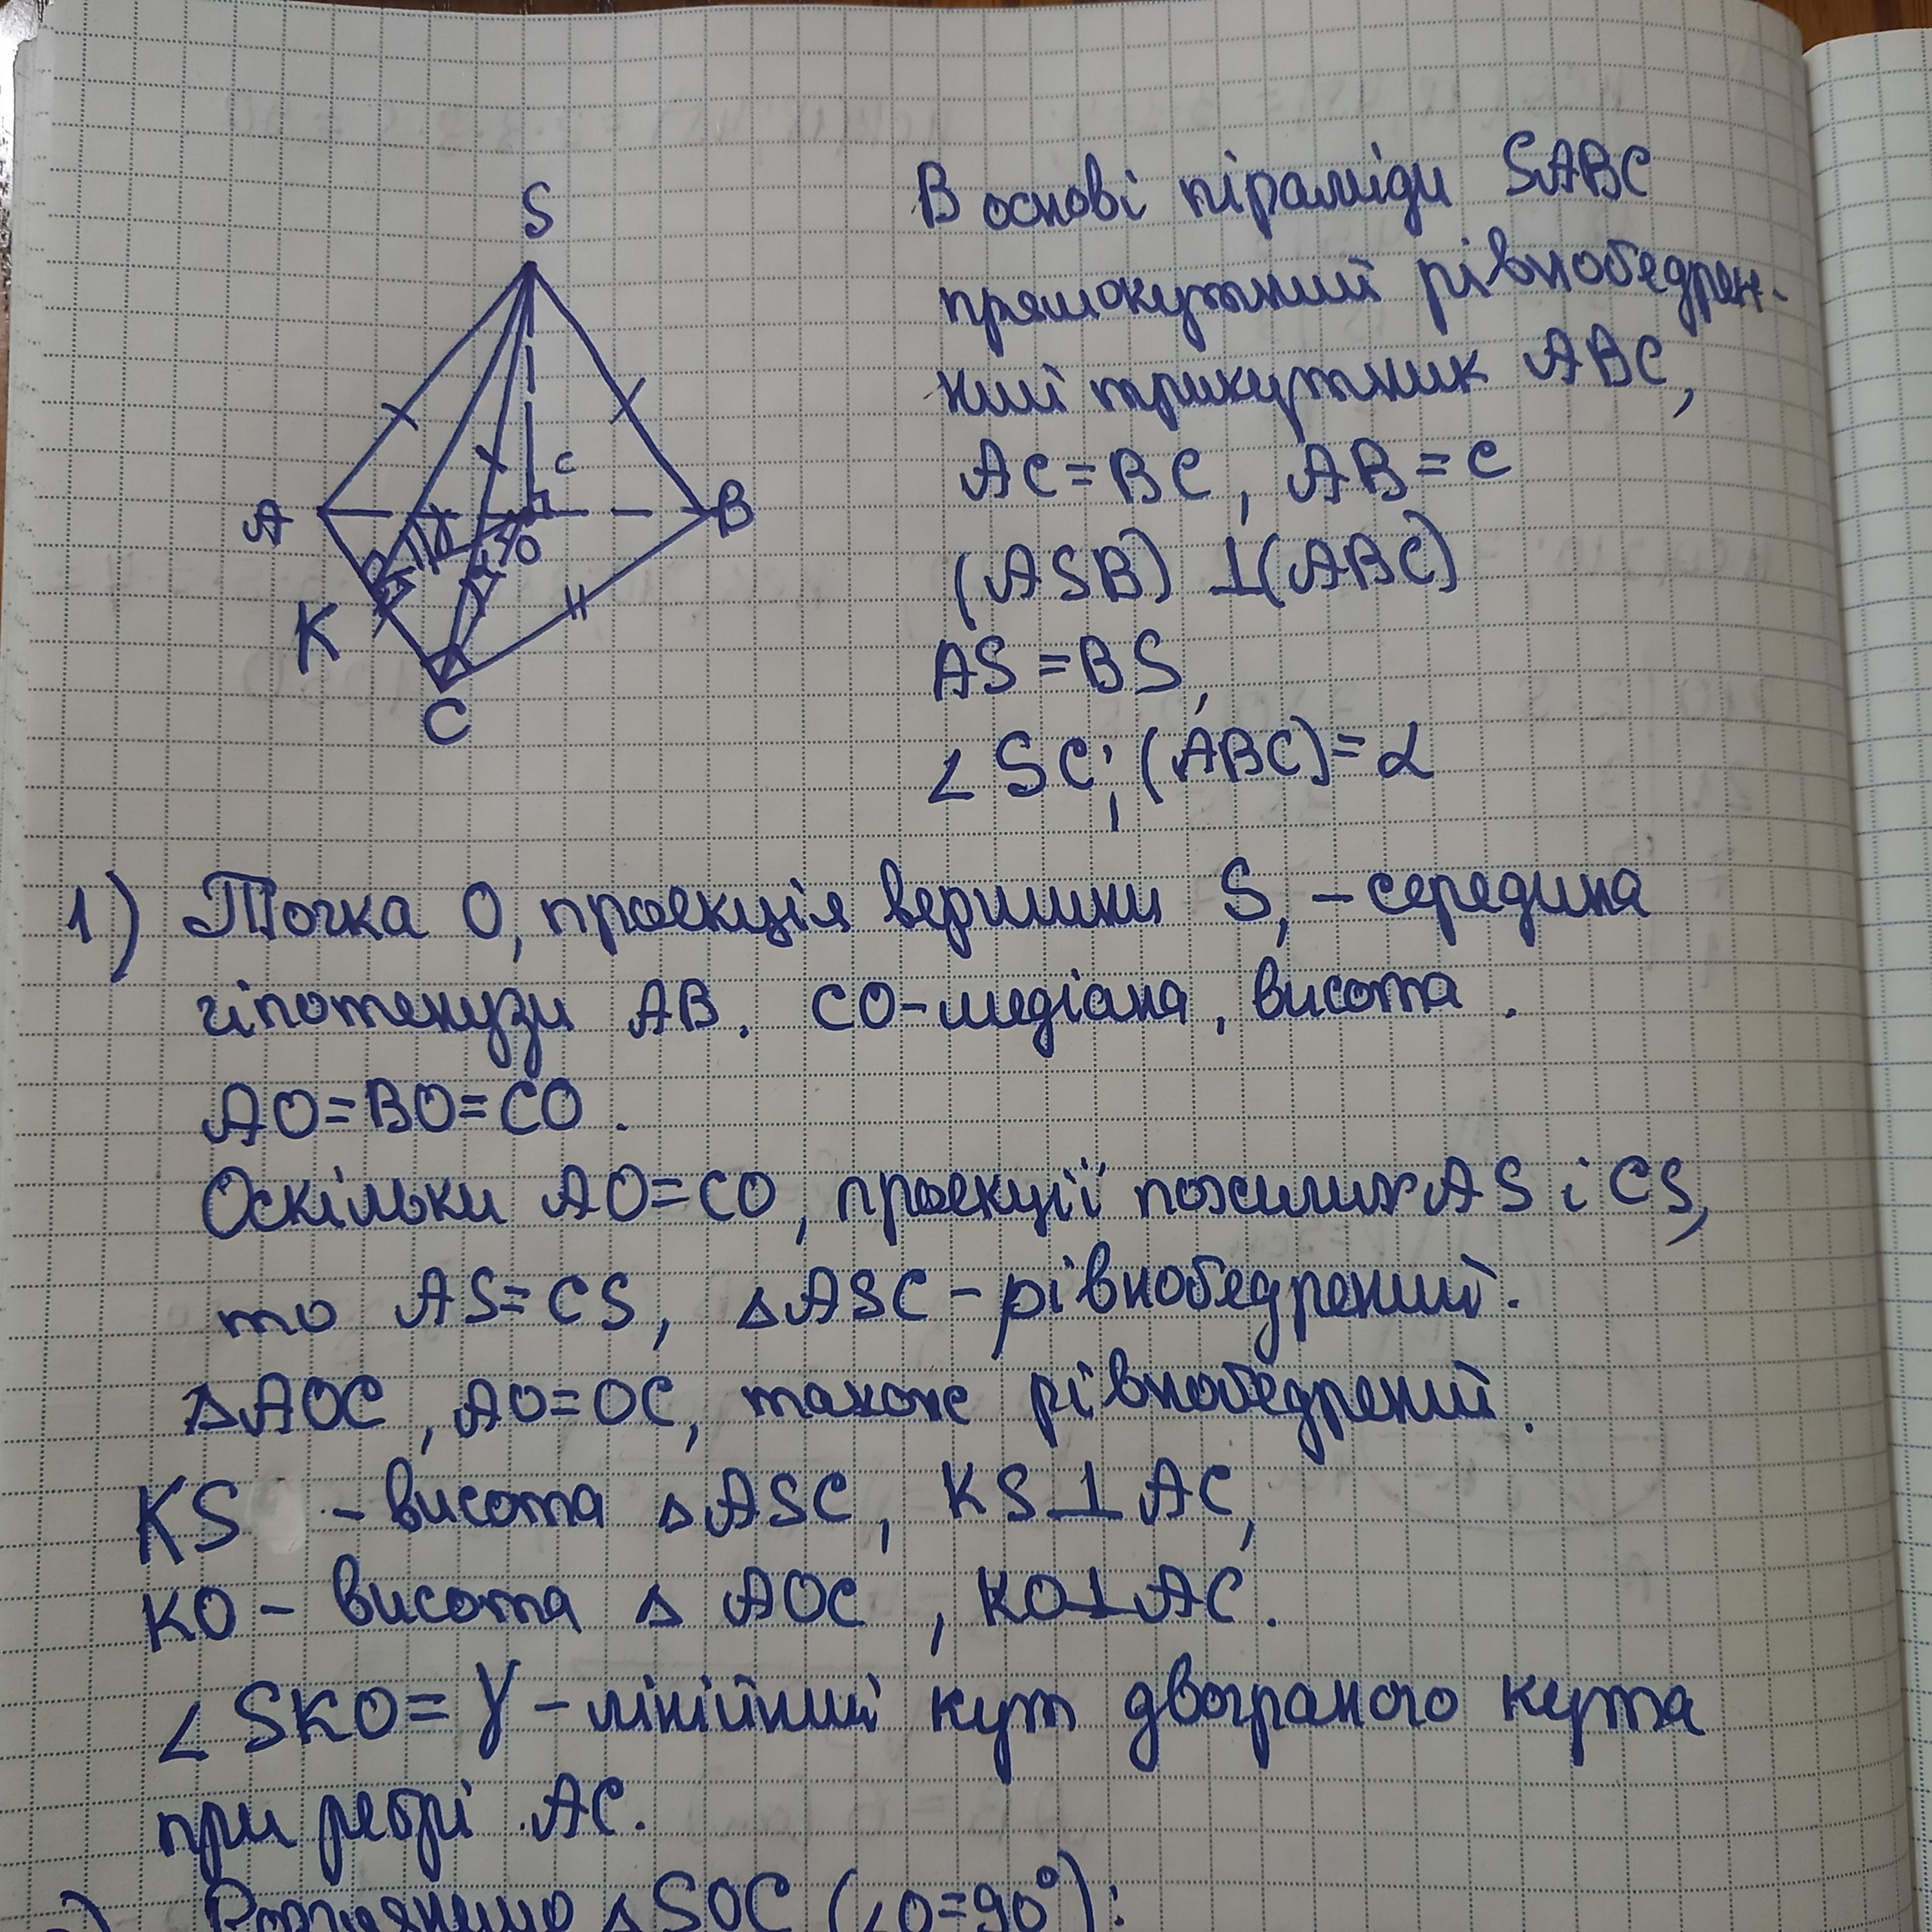 S
A
B
C
K
O
c
В основі піраміди SABC
прямокутний рівнобедрен-
ний трикутник ABC,
AC=BC, AB=c
(ASB)⊥(ABC)
AS=BS,
∠SC;(ABC)=α
1) Точка O, проєкція вершини S, – середина
гіпотенузи AB. CO-медіана, висота.
AO=BO=CO.
Оскільки AO=CO, проєкції похилих AS і CS,
то AS=CS, △ASC – рівнобедрений.
△AOC, AO=OC, також рівнобедрений.
KS – висота △ASC, KS⊥AC,
KO – висота △ AOC, KO⊥AC.
∠SKO=γ – лінійний кут двограного кута
при ребрі AC.
Розглянемо △SOC (∠O=90°):